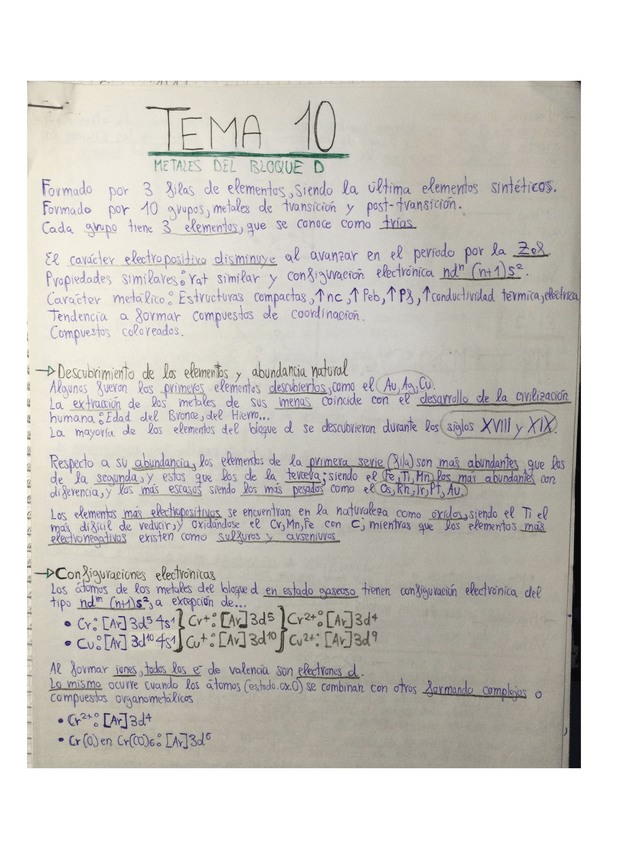 TEMA 10
METALES DEL BLOQUE D
Formado por 3 filas de elementos, siendo la última elementos sintéticos.
Formado por 10 grupos, metales de transición y post-transición.
Cada grupo tiene 3 elementos, que se conoce como trías.
El carácter electropositivo disminuye al avanzar en el periodo por la Zef.
Propiedades similares: rat similar y configuración electrónica ndⁿ (n+1)s².
Carácter metálico: Estructuras compactas, ↑nc, ↑Peb, ↑Pf, ↑conductividad térmica, eléctrica
Tendencia a formar compuestos de coordinación.
Compuestos coloreados.
→Descubrimiento de los elementos y abundancia natural
Algunos fueron los primeros elementos descubiertos, como el Au, Ag, Cu.
La extracción de los metales de sus menas coincide con el desarrollo de la civilización
humana: Edad del Bronce, del Hierro...
La mayoría de los elementos del bloque d se descubrieron durante los siglos XVIII y XIX.
Respecto a su abundancia, los elementos de la primera serie (fila) son más abundantes que los
de la segunda, y estos que los de la tercera; siendo el Fe, Ti, Mn los más abundantes con
diferencia, y los más escasos siendo los más pesados como el Os, Rn, Ir, Pt, Au.
Los elementos más electropositivos se encuentran en la naturaleza como óxidos, siendo el Ti el
más difícil de reducir; y oxidándose el Cr, Mn, Fe con C; mientras que los elementos más
electronegativos existen como sulfuros y arseniuros
→Configuraciones electrónicas
Los átomos de los metales del bloque d en estado gaseoso tienen configuración electrónica del
tipo ndᵐ (n+1)s², a excepción de...
• Cr: [Ar] 3d⁵ 4s¹ } Cr⁺: [Ar] 3d⁵ } Cr²⁺: [Ar] 3d⁴
• Cu: [Ar] 3d¹⁰ 4s¹ } Cu⁺: [Ar] 3d¹⁰ } Cu²⁺: [Ar] 3d⁹
Al formar iones, todos los e⁻ de valencia son electrones d.
Lo mismo ocurre cuando los átomos (estado ox. 0) se combinan con otros formando complejos o
compuestos organometálicos
• Cr²⁺: [Ar] 3d⁴
• Cr(0) en Cr(CO)₆: [Ar] 3d⁶